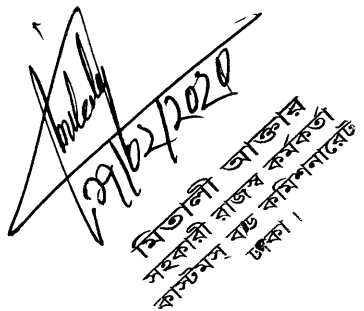 ২৭/০২/২০২০
মিতালী আক্তার
সহকারী রাজস্ব কর্মকর্তা
কাস্টমস বন্ড কমিশনারেট
ঢাকা।